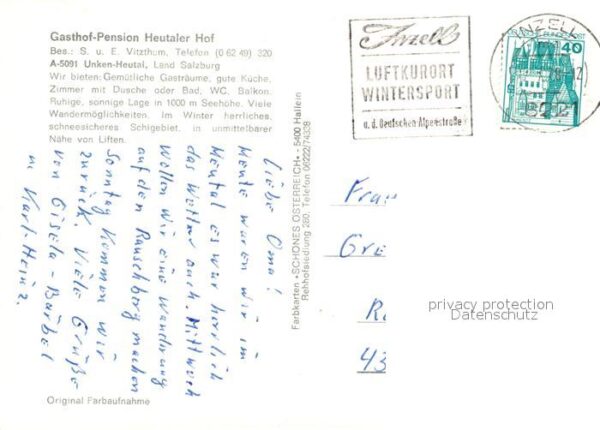 Gasthof-Pension Heutaler Hof
Bes.: S. u. E. Vitzthum, Telefon (0 62 49) 320
A-5091 Unken-Heutal, Land Salzburg
Wir bieten: Gemütliche Gasträume, gute Küche,
Zimmer mit Dusche oder Bad, WC, Balkon.
Ruhige, sonnige Lage in 1000 m Seehöhe. Viele
Wandermöglichkeiten. Im Winter herrliches,
schneesicheres Schigebiet, in unmittelbarer
Nähe von Liften.
Liebe Oma!
Heute waren wir im
Heutal es war herrlich
das Wetter auch. Mittwoch
wollen wir eine Wanderung
auf den Rauschberg machen
Sonntag kommen wir
zurück. Viele Grüße
von Gisela-Bärbel
u. Karl-Heinz.
Original Farbaufnahme
Farbkarten • SCHÖNES ÖSTERREICH • 5400 Hallein
Rehhofsiedlung 280, Telefon 06222/74338
Inzell
LUFTKURORT
WINTERSPORT
a. d. Deutschen Alpenstraße
INZELL
8221
40
Frau
Gre
R
43
privacy protection
Datenschutz